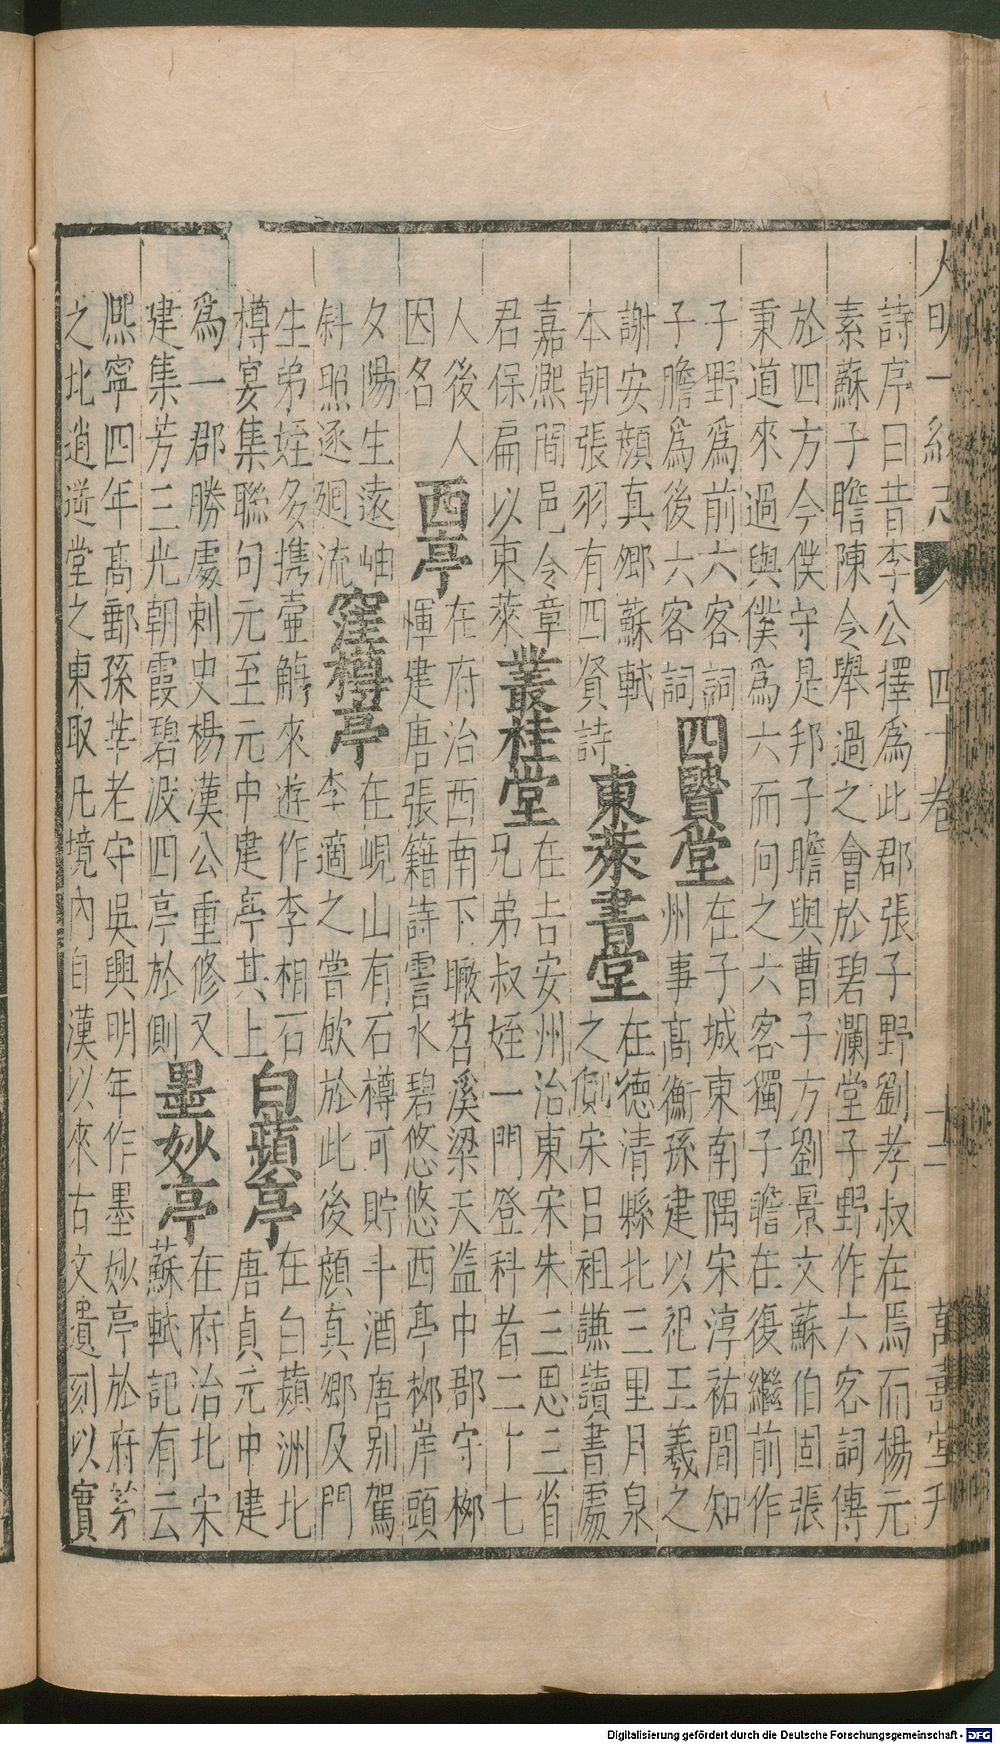 大明一統志 四十卷 十一 萬壽堂刊
詩序曰昔李公擇爲此郡張子野劉孝叔在焉而楊元
素蘇子瞻陳令舉過之會於碧瀾堂子野作六客詞傳
於四方今僕守是邦子瞻與曹子方劉景文蘇伯固張
秉道來過與僕爲六而向之六客獨子瞻在復繼前作
子野爲前六客詞
子瞻爲後六客詞
四賢堂
在子城東南隅宋淳祐間知
州事髙衡孫建以祀王羲之
謝安顔真卿蘇軾
本朝張羽有四賢詩
東萊書堂
在德清縣北三里月泉
之側宋吕祖謙讀書處
嘉熈間邑令章
君保扁以東萊
叢桂堂
在吉安州治東宋朱三思三省
兄弟叔姪一門登科者二十七
人後人
因名
西亭
在府治西南下瞰苕溪梁天監中郡守栁
惲建唐張籍詩霅水碧悠悠西亭栁岸頭
夕陽生遠岫
斜照逐廻流
窪樽亭
在峴山有石樽可貯斗酒唐别駕
李適之嘗飲於此後顔真卿及門
生弟姪多携壷觴來遊作李相石
樽宴集聯句元至元中建亭其上
白蘋亭
在白蘋洲北
唐貞元中建
爲一郡勝處刺史楊漢公重修又
建集芳三光朝霞碧波四亭於側
墨妙亭
在府治北宋
蘇軾記有云
熈寧四年髙郵孫莘老守吳興明年作墨妙亭於府苐
之北逍遥堂之東取凡境内自漢以來古文遺刻以實
Digitalisierung gefördert durch die Deutsche Forschungsgemeinschaft - DFG